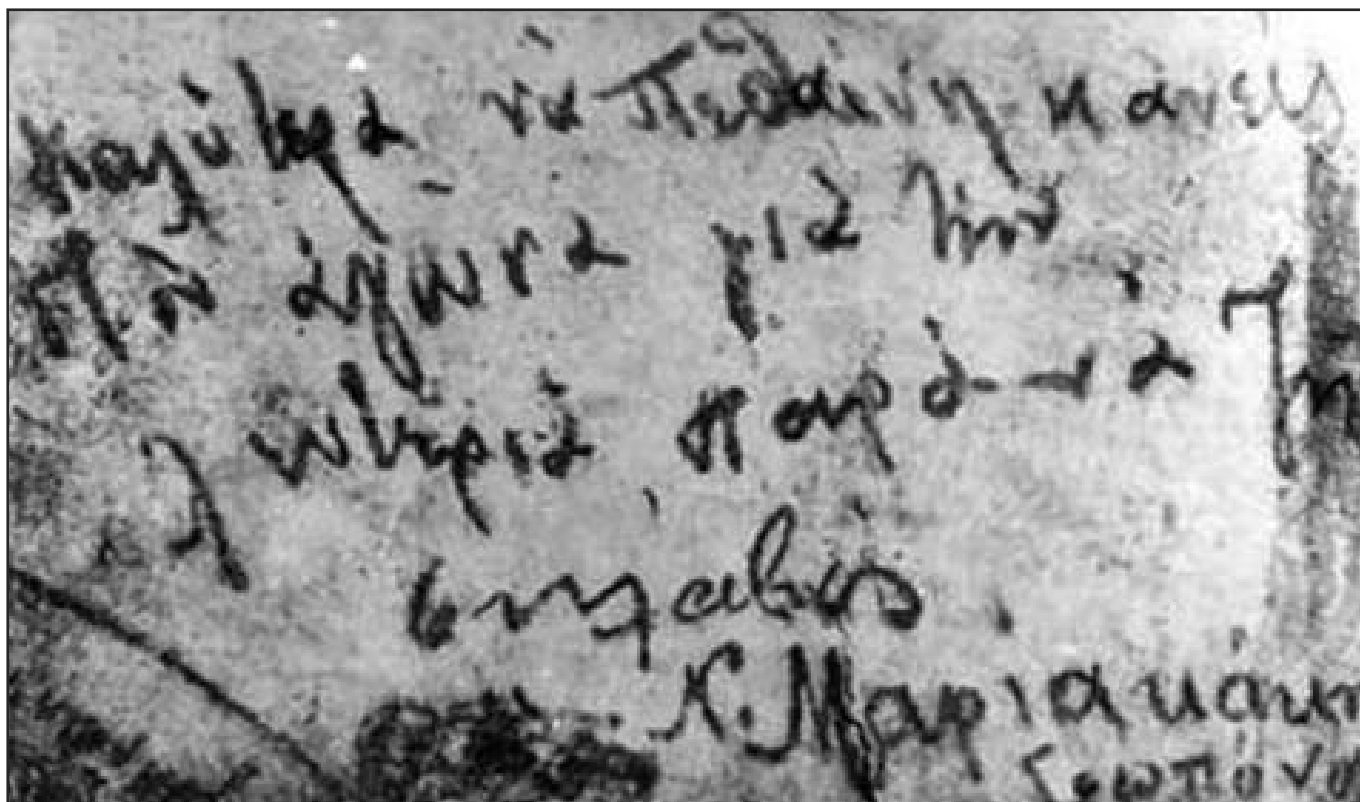 Καλύτερα νὰ πεθαίνη κανεὶς
στὸν ἀγῶνα γιὰ τὴν
λευτεριὰ παρὰ νὰ ζῆ
σκλάβος.
Ν. Μαριακάκη
Γεωπόνο